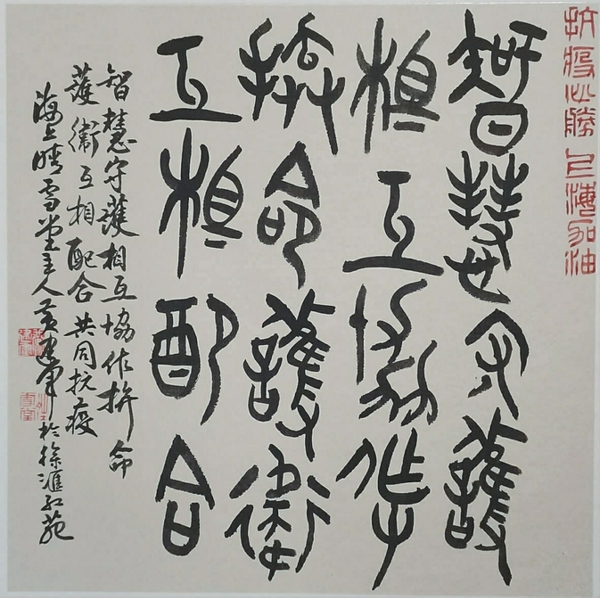 抗疫必勝 上海加油
智慧守護
相互協作
拚命護衛
互相配合
智慧守護相互協作拚命
護衛互相配合共同抗疫
海上晴雪堂主人黃建軍於徐滙紅苑